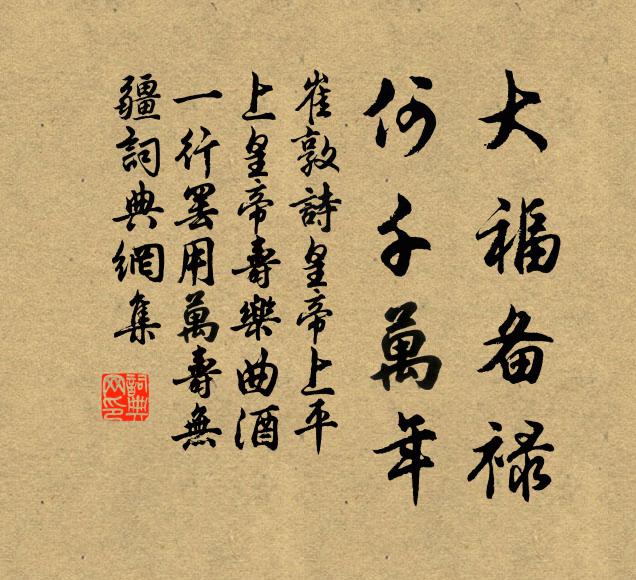 大福备禄
何千萬年
崔敦詩皇帝上平
上皇帝壽樂曲酒
一行罢用萬壽無
疆詞典網集
詞典
网印